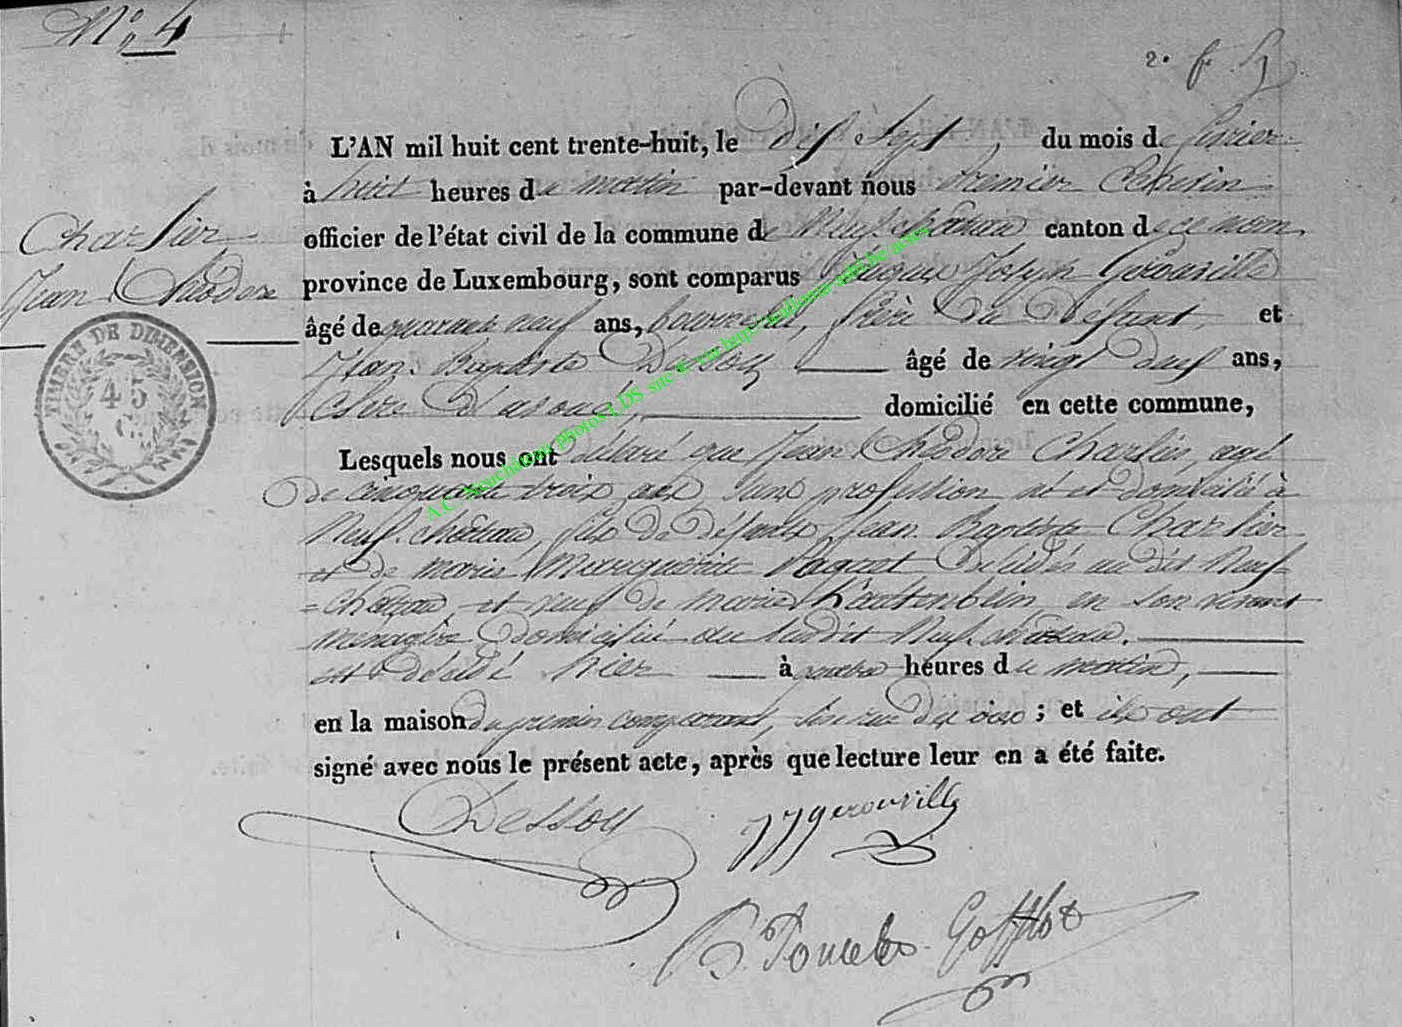 N° 4
2. f.
L'AN mil huit cent trente-huit, le dix Sept, du mois de fevrier
à huit heures du matin par-devant nous premier Echevin
Charlier
officier de l'état civil de la commune de Neufchâteau canton de ce nom
Jean Théodore
province de Luxembourg, sont comparus Jacques Joseph Gérouville
âgé de quarante neuf ans, bourrelier, frère du Défunt et
Jean Baptiste Dessoy âgé de vingt deux ans,
Clerc d'avoué, domicilié en cette commune,
TIMBRE DE DIMENSION
45
C.
Lesquels nous ont déclaré que Jean Théodore Charlier, agé
de cinquante trois ans, sans profession né et domicilié à
Neufchâteau, fils de défunts Jean Baptiste Charlier
et de marie Marguerite décédés au dit Neuf
=château, et veuf de marie en son vivant
ménagère domiciliée au susdit Neufchâteau.
est décédé hier à quatre heures du matin,
en la maison du premier comparant, ; et ils ont
signé avec nous le présent acte, après que lecture leur en a été faite.
Dessoy JJgerouville
Poncelet Gofflot
A.C. Neufchâteau Photos LDS snc - via http://wallonia-asbl.be/actes